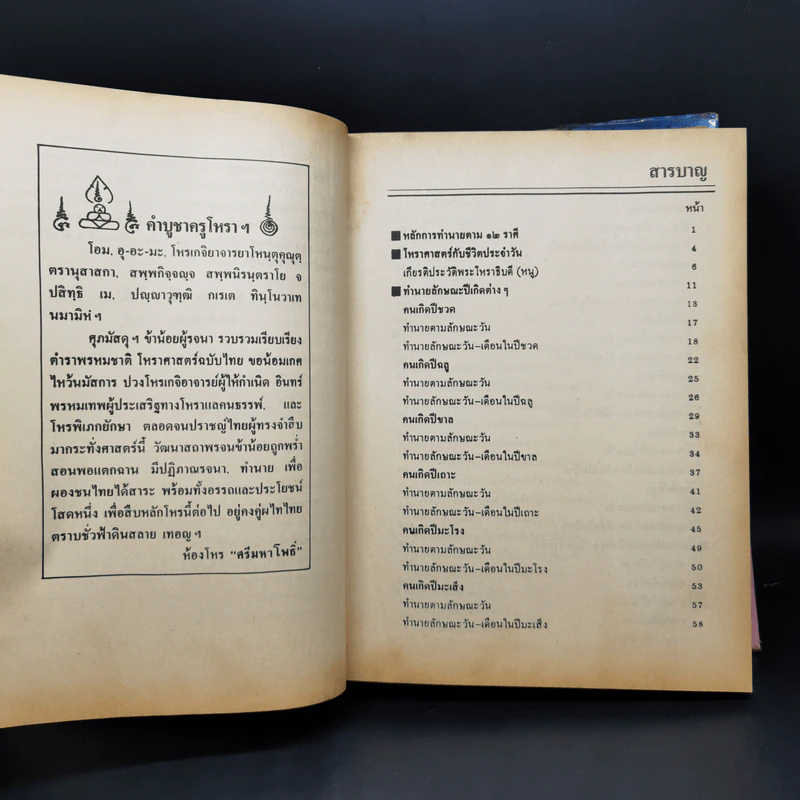 คำบูชาครูโหรา ฯ
โอม, อุ-อะ-มะ, โหรเกจิยาจารยาโหนฺตุคุณุตฺ
ตรานุสาสกา, สพฺพกิจฺจญฺจ สพฺพนิรนฺตราโย จ
ปสิทฺธิ เม, ปญฺญาวุฑฺฒิ กเรเต ทินฺโนวาเท
นมามิหํ ฯ
ศุภมัสดุ ฯ ข้าน้อยผู้รจนา รวบรวมเรียบเรียง
ตำราพรหมชาติ โหราศาสตร์ฉบับไทย ขอน้อมเกศ
ไหว้นมัสการ ปวงโหรเกจิอาจารย์ผู้ให้กำเนิด อินทร์
พรหมเทพผู้ประเสริฐทางโหราแลคนธรรพ์, และ
โหรพิเภกยักษา ตลอดจนปราชญ์ไทยผู้ทรงจำสืบ
มากระทั่งศาสตร์นี้ วัฒนาสถาพรจนข้าน้อยถูกพร่ำ
สอนพอแตกฉาน มีปฏิภาณรจนา, ทำนาย เพื่อ
ผองชนไทยได้สาระ พร้อมทั้งอรรถและประโยชน์
โสดหนึ่ง เพื่อสืบหลักโหรนี้ต่อไป อยู่คงคู่ผไทไทย
ตราบชั่วฟ้าดินสลาย เทอญ ฯ
ห้องโหร "ศรีมหาโพธิ์"
สารบาญ
หน้า
หลักการทำนายตาม ๑๒ ราศี 1
โหราศาสตร์กับชีวิตประจำวัน 4
เกียรติประวัติพระโหราธิบดี (หนู) 6
ทำนายลักษณะปีเกิดต่าง ๆ 11
คนเกิดปีชวด 13
ทำนายตามลักษณะวัน 17
ทำนายลักษณะวัน-เดือนในปีชวด 18
คนเกิดปีฉลู 22
ทำนายตามลักษณะวัน 25
ทำนายลักษณะวัน-เดือนในปีฉลู 26
คนเกิดปีขาล 29
ทำนายตามลักษณะวัน 33
ทำนายลักษณะวัน-เดือนในปีขาล 34
คนเกิดปีเถาะ 37
ทำนายตามลักษณะวัน 41
ทำนายลักษณะวัน-เดือนในปีเถาะ 42
คนเกิดปีมะโรง 45
ทำนายตามลักษณะวัน 49
ทำนายลักษณะวัน-เดือนในปีมะโรง 50
คนเกิดปีมะเส็ง 53
ทำนายตามลักษณะวัน 57
ทำนายลักษณะวัน-เดือนในปีมะเส็ง 58